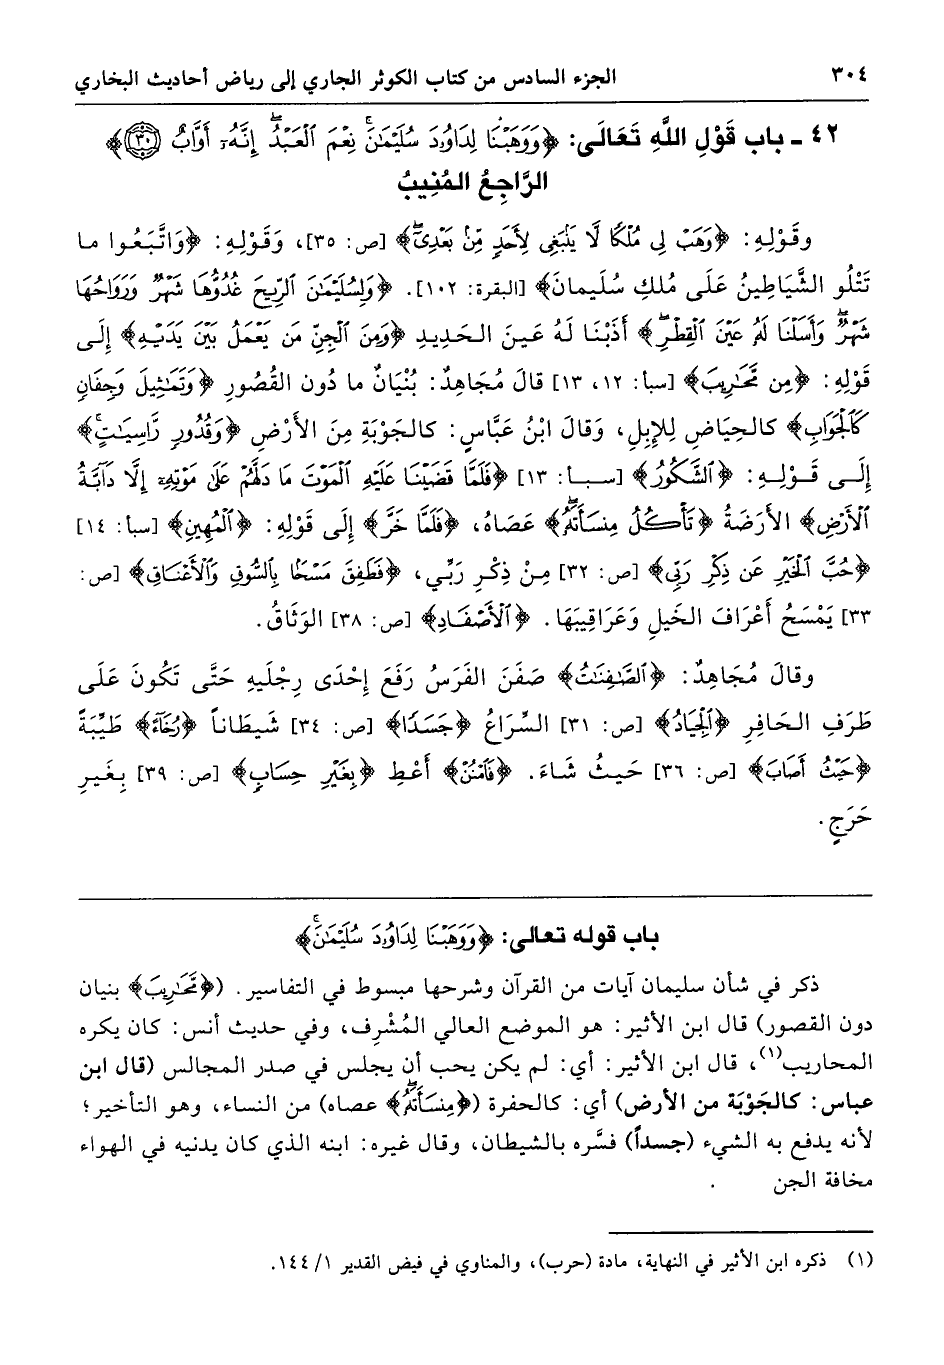 ٣٠٤ الجزء السادس من كتاب الكوثر الجاري إلى رياض أحاديث البخاري
٤٢ ـ باب قَوْلِ اللَّهِ تَعَالَى: ﴿وَوَهَبْنَا لِدَاوُۥدَ سُلَيْمَٰنَۚ نِعْمَ ٱلْعَبْدُۖ إِنَّهُۥٓ أَوَّابٌ ۝٣٠﴾
الرَّاجِعُ المُنِيبُ
وقَوْلِهِ: ﴿وَهَبْ لِى مُلْكًا لَّا يَنۢبَغِى لِأَحَدٍ مِّنۢ بَعْدِىٓۖ﴾ [ص: ٣٥]، وَقَوْلِهِ: ﴿وَاتَّبَعُوا ما
تَتْلُو الشَّيَاطِينُ عَلَى مُلكِ سُلَيمانَ﴾ [البقرة: ١٠٢]. ﴿وَلِسُلَيْمَٰنَ ٱلرِّيحَ غُدُوُّهَا شَهْرٌ وَرَوَاحُهَا
شَهْرٌۖ وَأَسَلْنَا لَهُۥ عَيْنَ ٱلْقِطْرِۖ﴾ أَذَبْنَا لَهُ عَينَ الحَدِيدِ ﴿وَمِنَ ٱلْجِنِّ مَن يَعْمَلُ بَيْنَ يَدَيْهِ﴾ إِلَى
قَوْلِهِ: ﴿مِن مَّحَٰرِيبَ﴾ [سبأ: ١٢، ١٣] قالَ مُجَاهِدٌ: بُنْيَانٌ ما دُون القُصُورِ ﴿وَتَمَٰثِيلَ وَجِفَانٍ
كَٱلْجَوَابِ﴾ كالحِيَاضِ لِلإِبِلِ، وَقَالَ ابْنُ عَبَّاسٍ: كالجَوْبَةِ مِنَ الأَرْضِ ﴿وَقُدُورٍ رَّاسِيَٰتٍۚ﴾
إِلَى قَوْلِهِ: ﴿ٱلشَّكُورُ﴾ [سبأ: ١٣] ﴿فَلَمَّا قَضَيْنَا عَلَيْهِ ٱلْمَوْتَ مَا دَلَّهُمْ عَلَىٰ مَوْتِهِۦٓ إِلَّا دَآبَّةُ
ٱلْأَرْضِ﴾ الأَرَضَةُ ﴿تَأْكُلُ مِنسَأَتَهُۥۖ﴾ عَصَاهُ، ﴿فَلَمَّا خَرَّ﴾ إِلَى قَوْلِهِ: ﴿ٱلْمُهِينِ﴾ [سبأ: ١٤]
﴿حُبَّ ٱلْخَيْرِ عَن ذِكْرِ رَبِّى﴾ [ص: ٣٢] مِنْ ذِكْرِ رَبِّي، ﴿فَطَفِقَ مَسْحًۢا بِٱلسُّوقِ وَٱلْأَعْنَاقِ﴾ [ص:
٣٣] يَمْسَحُ أَعْرَافَ الخَيلِ وَعَرَاقِيبَهَا. ﴿ٱلْأَصْفَادِ﴾ [ص: ٣٨] الوَثَاقُ.
وقالَ مُجَاهِدٌ: ﴿ٱلصَّٰفِنَٰتُ﴾ صَفَنَ الفَرَسُ رَفَعَ إِحْدَى رِجْلَيهِ حَتَّى تَكُونَ عَلَى
طَرَفِ الحَافِرِ ﴿ٱلْجِيَادُ﴾ [ص: ٣١] السِّرَاعُ ﴿جَسَدًا﴾ [ص: ٣٤] شَيطَاناً ﴿رُخَآءً﴾ طَيِّبَةً
﴿حَيْثُ أَصَابَ﴾ [ص: ٣٦] حَيثُ شَاءَ. ﴿فَٱمْنُنْ﴾ أَعْطِ ﴿بِغَيْرِ حِسَابٍ﴾ [ص: ٣٩] بِغَيرِ
حَرَجٍ.
باب قوله تعالى: ﴿وَوَهَبْنَا لِدَاوُۥدَ سُلَيْمَٰنَۚ﴾
ذكر في شأن سليمان آيات من القرآن وشرحها مبسوط في التفاسير. (﴿مَّحَٰرِيبَ﴾ بنيان
دون القصور) قال ابن الأثير: هو الموضع العالي المُشْرِف، وفي حديث أنس: كان يكره
المحاريب(١)، قال ابن الأثير: أي: لم يكن يحب أن يجلس في صدر المجالس (قال ابن
عباس: كالجَوْبَة من الأرض) أي: كالحفرة (﴿مِنسَأَتَهُۥۖ﴾ عصاه) من النساء، وهو التأخير؛
لأنه يدفع به الشيء (جسداً) فسَّره بالشيطان، وقال غيره: ابنه الذي كان يدنيه في الهواء
مخافة الجن .
(١) ذكره ابن الأثير في النهاية، مادة (حرب)، والمناوي في فيض القدير ١/ ١٤٤.